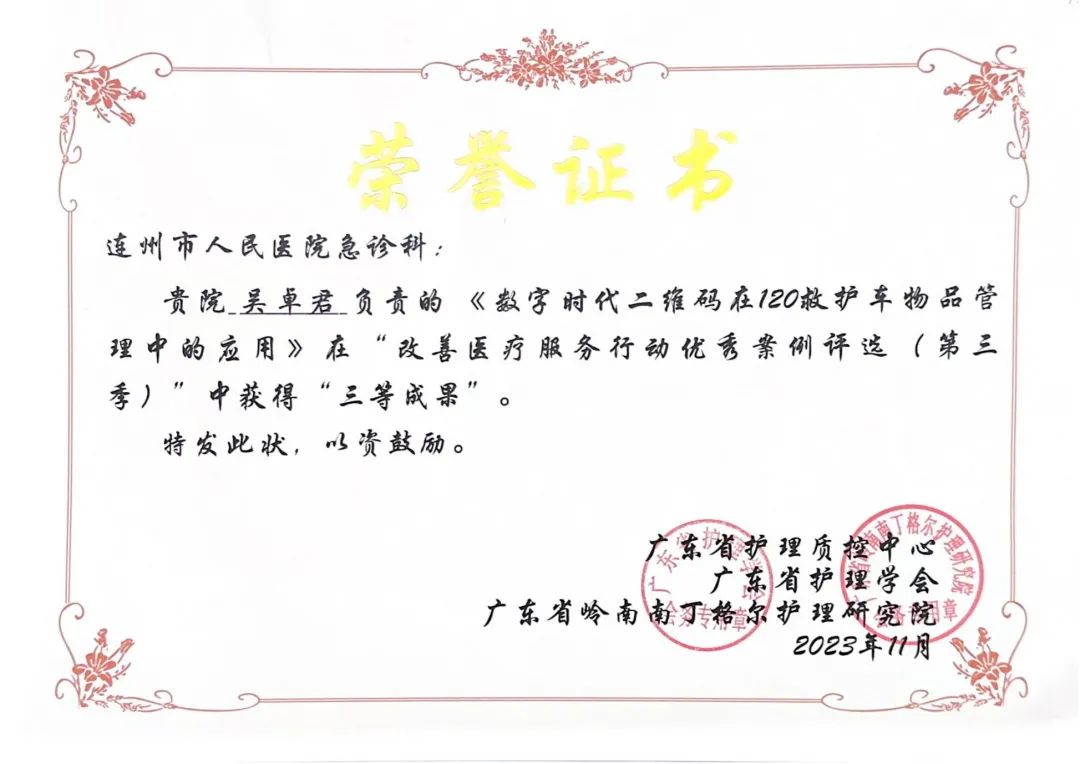 荣誉证书
连州市人民医院急诊科：
贵院 吴卓君 负责的《数字时代二维码在120救护车物品管
理中的应用》在“改善医疗服务行动优秀案例评选（第三
季）”中获得“三等成果”。
特发此状，以资鼓励。
广东省护理质控中心
广东省护理学会
广东省岭南南丁格尔护理研究院
2023年11月
广东省护理学会
会务专用章
广东省岭南南丁格尔护理研究院
会务专用章